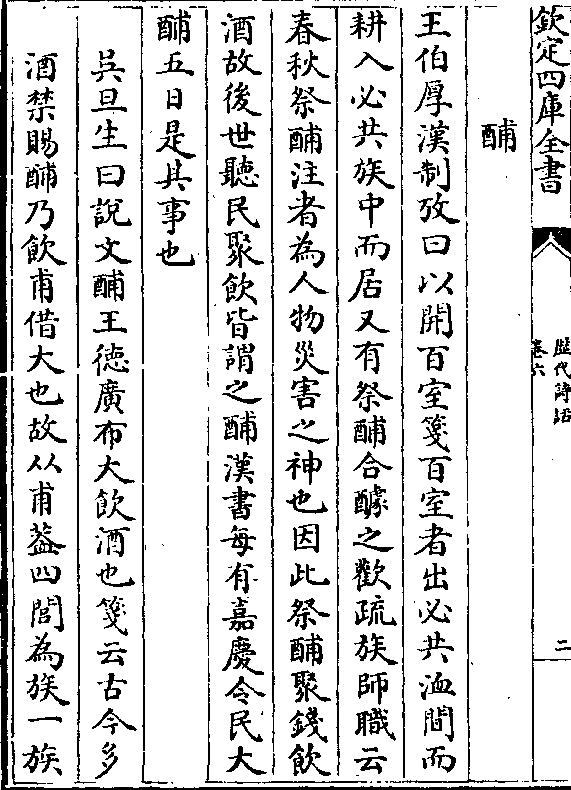 欽定四庫全書
歷代詩話
卷六
二
酺
王伯厚漢制攷曰以開百室箋百室者出必共洫間而
耕入必共族中而居又有祭酺合醵之歡疏族師職云
春秋祭酺注者為人物災害之神也因此祭酺聚錢飲
酒故後世聽民聚飲皆謂之酺漢書每有嘉慶令民大
酺五日是其事也
吳旦生曰說文酺王徳廣布大飲酒也箋云古今多
酒禁賜酺乃飲甫借大也故从甫葢四閭為族一族